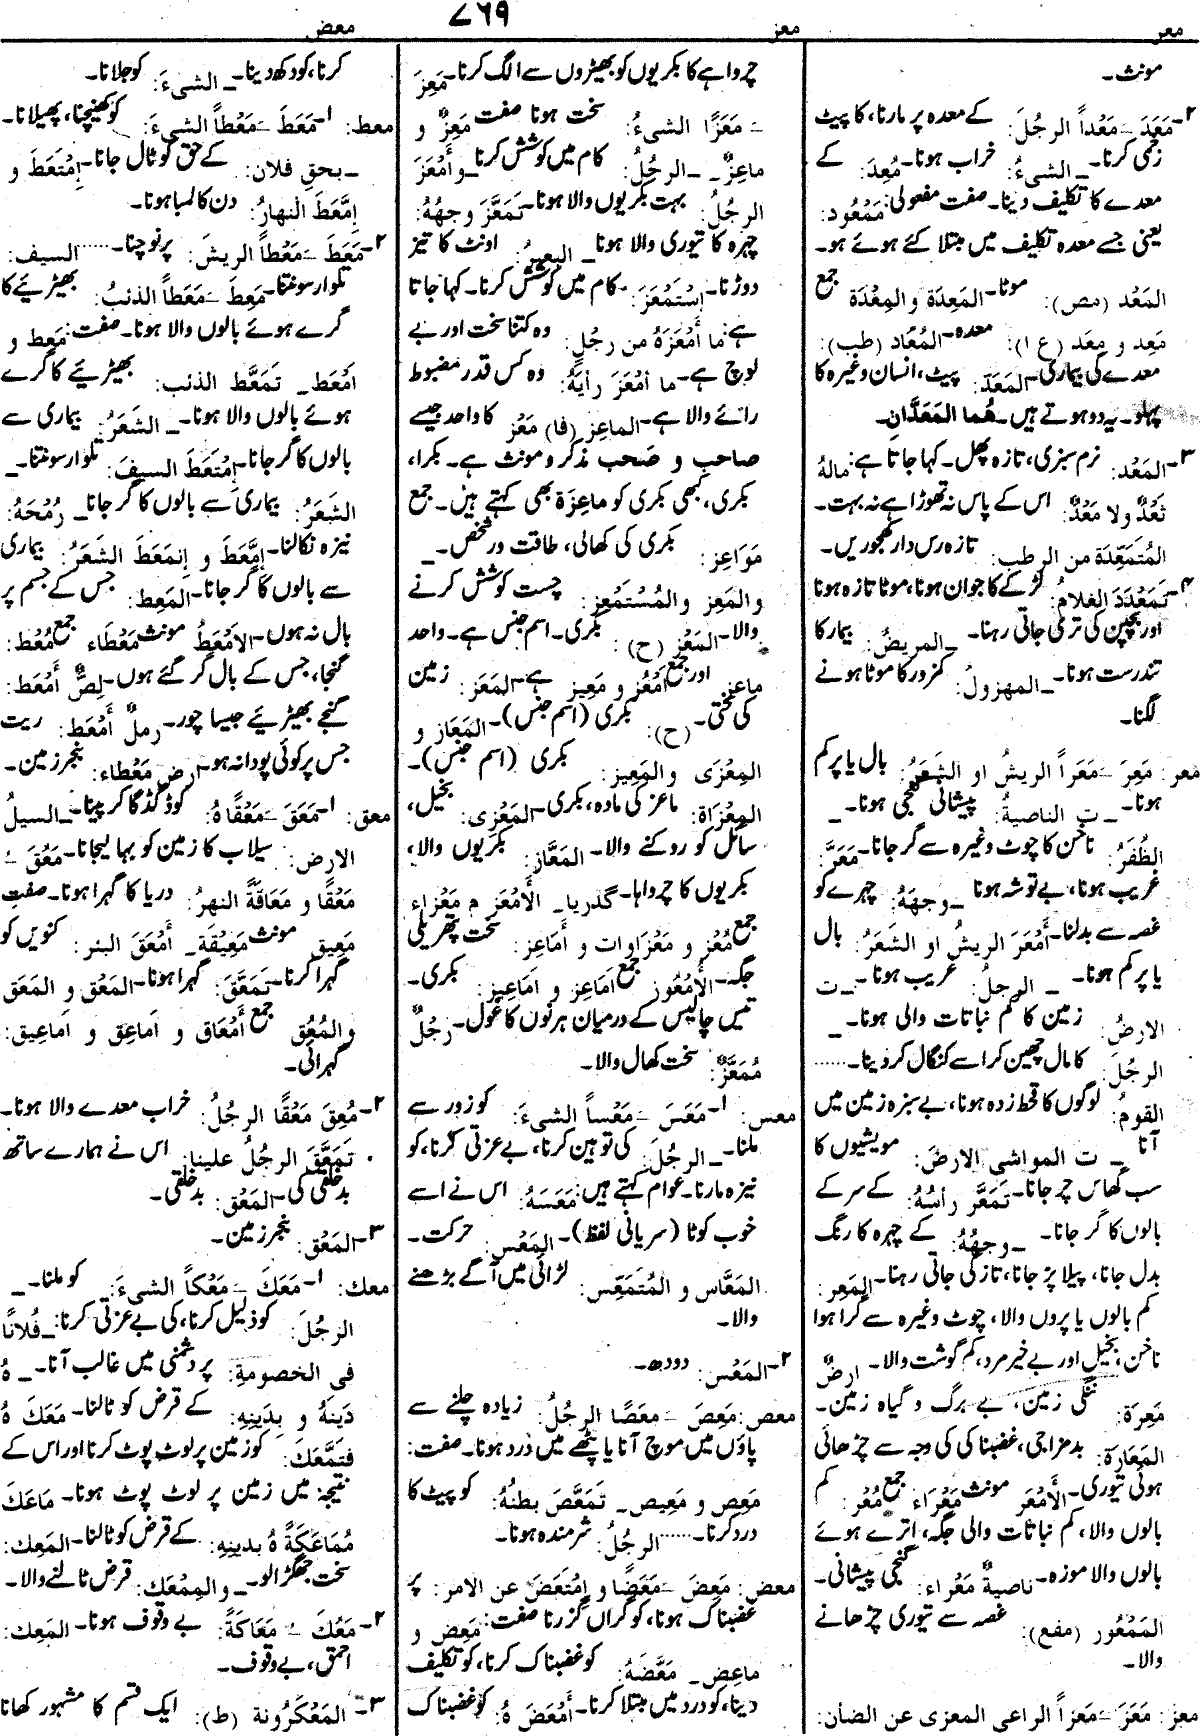 معر
معز
٧٦٩
معض
مونث۔
٢- مَعَدَ - مَعْداً الرجُلَ: کے معدہ پر مارنا، کا پیٹ
زخمی کرنا۔ _الشیءُ: خراب ہونا۔ مُعِدَ: کے
معدے کا تکلیف دینا۔ صفت مفعولی: مَمْعُود:
یعنی جسے معدہ تکلیف میں مبتلا کئے ہوئے ہو۔
المَعْد (مص): موٹا۔ المَعِدَة و المِعْدَة جمع
مَعِد و مِعَد (ع ا): معدہ۔ المُعَاد (طب):
معدے کی بیماری۔ المَعَدّ: پیٹ، انسان وغیرہ کا
پہلو۔ یہ دو ہوتے ہیں۔ هُما المَعَدَّان۔
٣- المَعْد: نرم سبزی، تازہ پھل۔ کہا جاتا ہے: مالهُ
ثَعْدٌ ولا مَعْدٌ: اس کے پاس نہ تھوڑا ہے نہ بہت۔
المُتَمَعِّدة من الرطب: تازہ رس دار کھجوریں۔
٤- تَمَعْدَدَ الغلامُ: لڑکے کا جوان ہونا، موٹا تازہ ہونا
اور بچپن کی تری جاتی رہنا۔ _المریضُ: بیمار کا
تندرست ہونا۔ _المهزولُ: کمزور کا موٹا ہونے
لگنا۔
معر: مَعِرَ - مَعَراً الریشُ او الشعَرُ: بال یا پر کم
ہونا۔ _ ت الناصیةُ: پیشانی گنجی ہونا۔ _
الظُفْرُ: ناخن کا چوٹ وغیرہ سے گر جانا۔ مَعَّرَ:
غریب ہونا، بے توشہ ہونا _وجهَهُ: چہرے کو
غصہ سے بدلنا۔ أَمْعَرَ الریشُ او الشَعَرُ: بال
یا پر کم ہونا۔ _ الرجلُ: غریب ہونا۔ _ت
الارضُ: زمین کا کم نباتات والی ہونا۔ _
الرجلَ: کا مال چھین کر اسے کنگال کر دینا۔......
القومُ: لوگوں کا قحط زدہ ہونا، بے سبزہ زمین میں
آنا _ ت المواشی الارضَ: مویشیوں کا
سب گھاس چر جانا۔ تَمَعَّر رأسُهُ: کے سر کے
بالوں کا گر جانا۔ _وجهُهُ: کے چہرہ کا رنگ
بدل جانا، پیلا پڑ جانا، تازگی جاتی رہنا۔ المَعِر:
کم بالوں یا پروں والا، چوٹ وغیرہ سے گرا ہوا
ناخن، بخیل اور بے خیر مرد، کم گوشت والا۔ ارضٌ
مَعِرَة: ننگی زمین، بے برگ و گیاہ زمین۔
المَعَارَة: بدمزاجی، غضبناکی کی وجہ سے چڑھائی
ہوئی تیوری۔ الأمْعَر مونث مَعْرَاء جمع مُعْر: کم
بالوں والا، کم نباتات والی جگہ، اترے ہوئے
بالوں والا موزہ۔ ناصیةٌ مَعْراء: گنجی پیشانی۔
المَمْعُور (مفع): غصہ سے تیوری چڑھانے
والا۔
معز: مَعَزَ - مَعْزاً الراعی المعزی عن الضان:
چرواہے کا بکریوں کو بھیڑوں سے الگ کرنا۔ مَعِزَ
- مَعَزًا الشیءُ: سخت ہونا صفت مَعِزٌ و
ماعِزٌ۔ _الرجلُ: کام میں کوشش کرنا۔ و أَمْعَزَ
الرجُلُ: بہت بکریوں والا ہونا۔ تَمَعَّزَ وجهُهُ:
چہرہ کا تیوری والا ہونا _ البعیرُ: اونٹ کا تیز
دوڑنا۔ اسْتَمْعَزَ: کام میں کوشش کرنا۔ کہا جاتا
ہے: ما أَمْعَزَهُ من رجُلٍ: وہ کتنا سخت اور بے
لوچ ہے۔ ما أَمْعَزَ رأیَهُ: وہ کس قدر مضبوط
رائے والا ہے۔ الماعِز (فا) مَعْز کا واحد جیسے
صاحب و صَحب مذکر و مونث ہے۔ بکرا،
بکری، کبھی بکری کو ماعِزَة بھی کہتے ہیں۔ جمع
مَوَاعِز: بکری کی کھالی، طاقت ور شخص۔ _
والمَعِز والمُسْتَمْعِز: چست کوشش کرنے
والا۔ المَعْز (ح): بکری۔ اسم جنس ہے۔ واحد
ماعِز اور جمع أَمْعُز و مَعِیز ہے۔ المَعَز: زمین
کی سختی۔ (ح): بکری (اسم جنس)۔ المَعَاز و
المِعْزَی والمَعِیز: بکری (اسم جنس)۔
المِعْزَاة: ماعز کی مادہ، بکری۔ المَعْزِی: بخیل،
سائل کو روکنے والا۔ المَعَّاز: بکریوں والا،
بکریوں کا چرواہا۔ گڈریا۔ الأمْعَز م مَعْزاء
جمع مُعْز و مَعْزاوات و أَمَاعِز: سخت پتھریلی
جگہ۔ الأُمْعُوز جمع اَمَاعِز و اَمَاعِیز: بکری۔
تیس چالیس کے درمیان ہرنوں کا غول۔ رَجُلٌ
مُمَعَّزٌ: سخت کھال والا۔
معس: ١- مَعَسَ - مَعْساً الشیءَ: کو زور سے
ملنا۔ _الرجُلَ: کی توہین کرنا، بے عزتی کرنا، کو
نیزہ مارنا۔ عوام کہتے ہیں: مَعَسَهُ: اس نے اسے
خوب کوٹا (سریانی لفظ)۔ المَعْس: حرکت۔
المَعَّاس و المُتَمَعِّس: لڑائی میں آگے بڑھنے
والا۔
٢- المَعْس: دودھ۔
معص: مَعِصَ - مَعَصًا الرجُلُ: زیادہ چلنے سے
پاؤں میں موچ آنا یا پٹھے میں درد ہونا۔ صفت:
مَعِص و مَعِیص۔ تَمَعَّصَ بطنُهُ: کو پیٹ کا
درد کرنا۔...... الرجُلُ: شرمندہ ہونا۔
معض: مَعِضَ - مَعَضًا و اِمْتَعَضَ عن الامر: پر
غضبناک ہونا، کو گراں گزرنا صفت: مَعِض و
ماعِض۔ مَعَّضَهُ: کو غضبناک کرنا، کو تکلیف
دینا، کو درد میں مبتلا کرنا۔ أَمْعَضَ هُ: کو غضبناک
کرنا، کو دکھ دینا۔ _الشیءَ: کو جلانا۔
معط: ١- مَعَطَ - مَعْطاً الشیءَ: کو کھینچنا، پھیلانا۔
_بحقِ فلان: کے حق کو ٹال جانا۔ اِمْتَعَطَ و
اِمَّعَطَ النهارُ: دن کا لمبا ہونا۔
٢- مَعَطَ - مَعْطاً الریشَ: پر نوچنا۔...... السیف:
تلوار سونتنا۔ مَعِطَ - مَعَطاً الذئبُ: بھیڑیئے کا
گرے ہوئے بالوں والا ہونا۔ صفت: مَعِط و
أَمْعَط _ تَمَعَّط الذئب: بھیڑیئے کا گرے
ہوئے بالوں والا ہونا۔ _ الشَعَرُ: بیماری سے
بالوں کا گر جانا۔ اِمْتَعَطَ السیفَ: تلوار سونتنا۔ _
الشعَرُ: بیماری سے بالوں کا گر جانا _ رُمْحَهُ:
نیزہ نکالنا۔ اِمَّعَطَ و اِنمَعَطَ الشعَرُ: بیماری
سے بالوں کا گر جانا۔ المَعِط: جس کے جسم پر
بال نہ ہوں۔ الاَمْعَطُ مونث مَعْطَاء جمع مُعْط:
گنجا، جس کے بال گر گئے ہوں۔ لِصٌّ أَمْعَط:
گنجے بھیڑیے جیسا چور۔ رملٌ أَمْعَط: ریت
جس پر کوئی پودا نہ ہو۔ ارض مَعْطاء: بنجر زمین۔
معق: ١- مَعَقَ - مَعْقًا هُ: کو ڈگڈگا کر پینا۔ _السیلُ
الارضَ: سیلاب کا زمین کو بہا لیجانا۔ مَعُقَ -
مَعْقًا و مَعَاقَةً النهرُ: دریا کا گہرا ہونا۔ صفت
مَعِیق مونث مَعِیْقَة۔ أَمْعَقَ البئر: کنویں کو
گہرا کرنا۔ تَمَعَّقَ: گہرا ہونا۔ المَعْق و المَعَق
والمُعْق جمع أَمْعَاق و اَمَاعِق و اَماعِیق:
گہرائی۔
٢- مُعِقَ مَعْقًا الرجُلُ: خراب معدے والا ہونا۔
تَمَعَّقَ الرجُلُ علینا: اس نے ہمارے ساتھ
بد خلقی کی۔ المَعْق: بد خلقی۔
٣- المَعْق: بنجر زمین۔
معك: ١- مَعَكَ - مَعْكاً الشیءَ: کو ملنا۔ _
الرجُلَ: کو ذلیل کرنا، کی بے عزتی کرنا: _فُلانًا
فی الخصومةِ: پر دشمنی میں غالب آنا۔ _ هُ
دَینَهُ و بِدَینِهِ: کے قرض کو ٹالنا۔ مَعَّكَ هُ
فَتَمَعَّكَ: کو زمین پر لوٹ پوٹ کرنا اور اس کے
نتیجہ میں زمین پر لوٹ پوٹ ہونا۔ مَاعَكَ
مُمَاعَكَةً هُ بدینِهِ: کے قرض کو ٹالنا۔ المَعِك:
سخت جھگڑالو۔ _والمِمْعَك: قرض ٹالنے والا۔
٢- مَعُكَ - مَعَاكَةً: بے وقوف ہونا۔ المَعِك:
احمق، بے وقوف۔
٣- المَعْكَرُونة (ط): ایک قسم کا مشہور کھانا